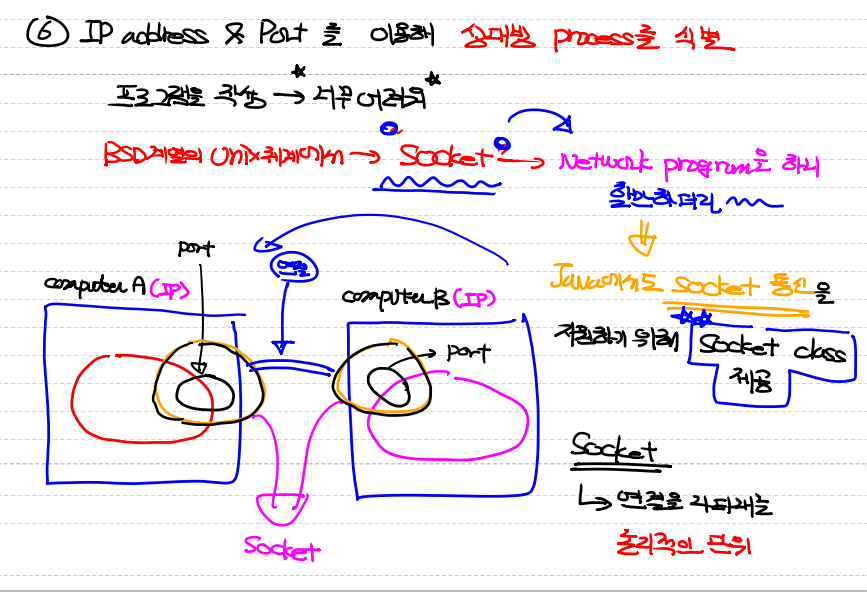 ⑥ IP address & Port 를 이용해 상대방 process를 식별
프로그램을 작성 → 너무 어려워
BSD계열의 Unix체계에서 → Socket → Network program을 하니
할만하더라
Java에서도 socket 통신을
지원하기 위해 Socket class
제공
port
연결
computer A (IP)
computer B (IP)
port
Socket
Socket
↳ 연결을 나타내는
논리적인 단위